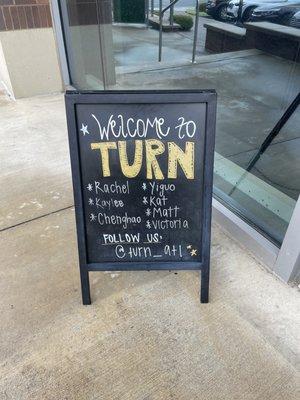 Welcome to
TURN
* Rachel * Yiguo
* Kaylee * Kat
* Chenghao * Matt
* Victoria
FOLLOW US:
@turn_atl